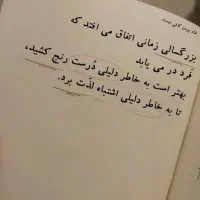 بزرگسالی زمانی اتفاق می افتد که
فرد در می یابد
بهتر است به خاطر دلیلی دُرست رنج کشید،
تا به خاطر دلیلی اشتباه لذّت برد.